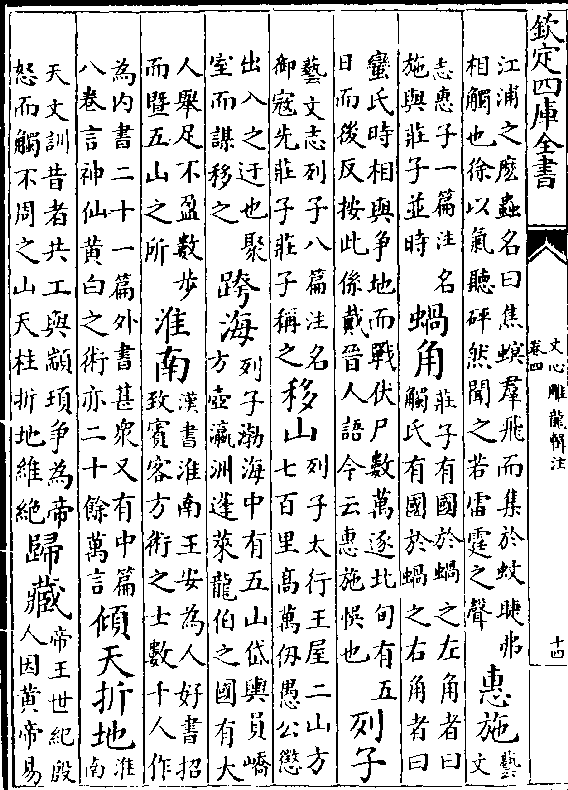 欽定四庫全書
文心雕龍輯注
卷四
十四
江浦之麽蟲名曰焦螟羣飛而集於蚊睫弗
相觸也徐以氣聽砰然聞之若雷霆之聲
惠施
藝
文
志惠子一篇注名
施與莊子並時
蝸角
莊子有國於蝸之左角者曰
觸氏有國於蝸之右角者曰
蠻氏時相與争地而戰伏尸數萬逐北旬有五
日而後反按此係戴晉人語今云惠施悞也
列子
藝文志列子八篇注名
御寇先莊子莊子稱之
移山
列子太行王屋二山方
七百里髙萬仞愚公懲
出入之迂也聚
室而謀移之
跨海
列子渤海中有五山岱輿員嶠
方壺瀛洲蓬萊龍伯之國有大
人舉足不盈數步
而暨五山之所
淮南
漢書淮南王安為人好書招
致賓客方術之士數千人作
為内書二十一篇外書甚衆又有中篇
八卷言神仙黄白之術亦二十餘萬言
傾天折地
淮
南
天文訓昔者共工與顓頊争為帝
怒而觸不周之山天柱折地維絶
歸藏
帝王世紀殷
人因黄帝易